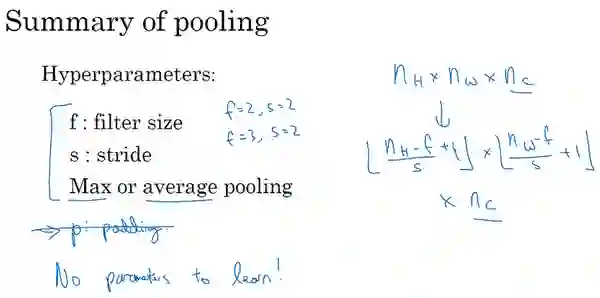 Summary of pooling
Hyperparameters:
f : filter size
f=2, s=2
f=3, s=2
s : stride
Max or average pooling
→ p: padding.
No parameters to learn!
n_H × n_W × n_C
↓
⌊(n_H - f)/s + 1⌋ × ⌊(n_W - f)/s + 1⌋
× n_C